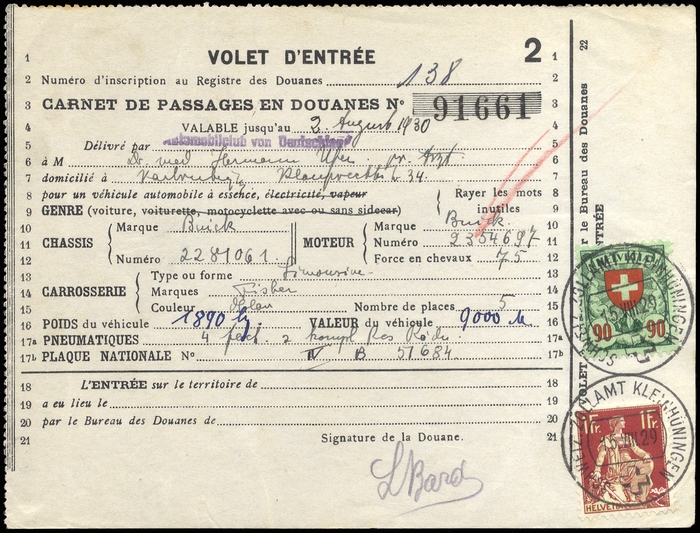 VOLET D'ENTRÉE 2
1 1
2 Numéro d'inscription au Registre des Douanes 138 2
3 CARNET DE PASSAGES EN DOUANES No 91661 3
4 VALABLE jusqu'au 2. August 1930 4
5 Délivré par Automobilclub von Deutschland 5
6 à M Dr med Hermann pr. Arzt 6
7 domicilié à Karlsruhe 34. 7
8 pour un véhicule automobile à essence, électricité, vapeur Rayer les mots inutiles 8
9 GENRE (voiture, voiturette, motocyclette avec ou sans sidecar) 9
10 Marque Buick Marque Buick 10
11 CHASSIS MOTEUR Numéro 2354697 11
12 Numéro 2281061. Force en chevaux 75 12
13 Type ou forme Limousine 13
14 CARROSSERIE Marques Fisher 14
15 Couleur Nombre de places 5 15
16 POIDS du véhicule 1890 kg VALEUR du véhicule 9000 M 16
17a PNEUMATIQUES 4 2 17a
17b PLAQUE NATIONALE No IV B 51684 17b
18 L'ENTRÉE sur le territoire de 18
19 a eu lieu le 19
20 par le Bureau des Douanes de 20
21 Signature de la Douane. 21
L Bard
22
r le Bureau des Douanes
NTRÉE
VOLET
90 90
SCHWEIZ. ZOLLAMT KLEINHÜNINGEN
15.VIII.29
1Fr. 1Fr.
HELVETIA
SCHWEIZ. ZOLLAMT KLEINHÜNINGEN
15.VIII.29